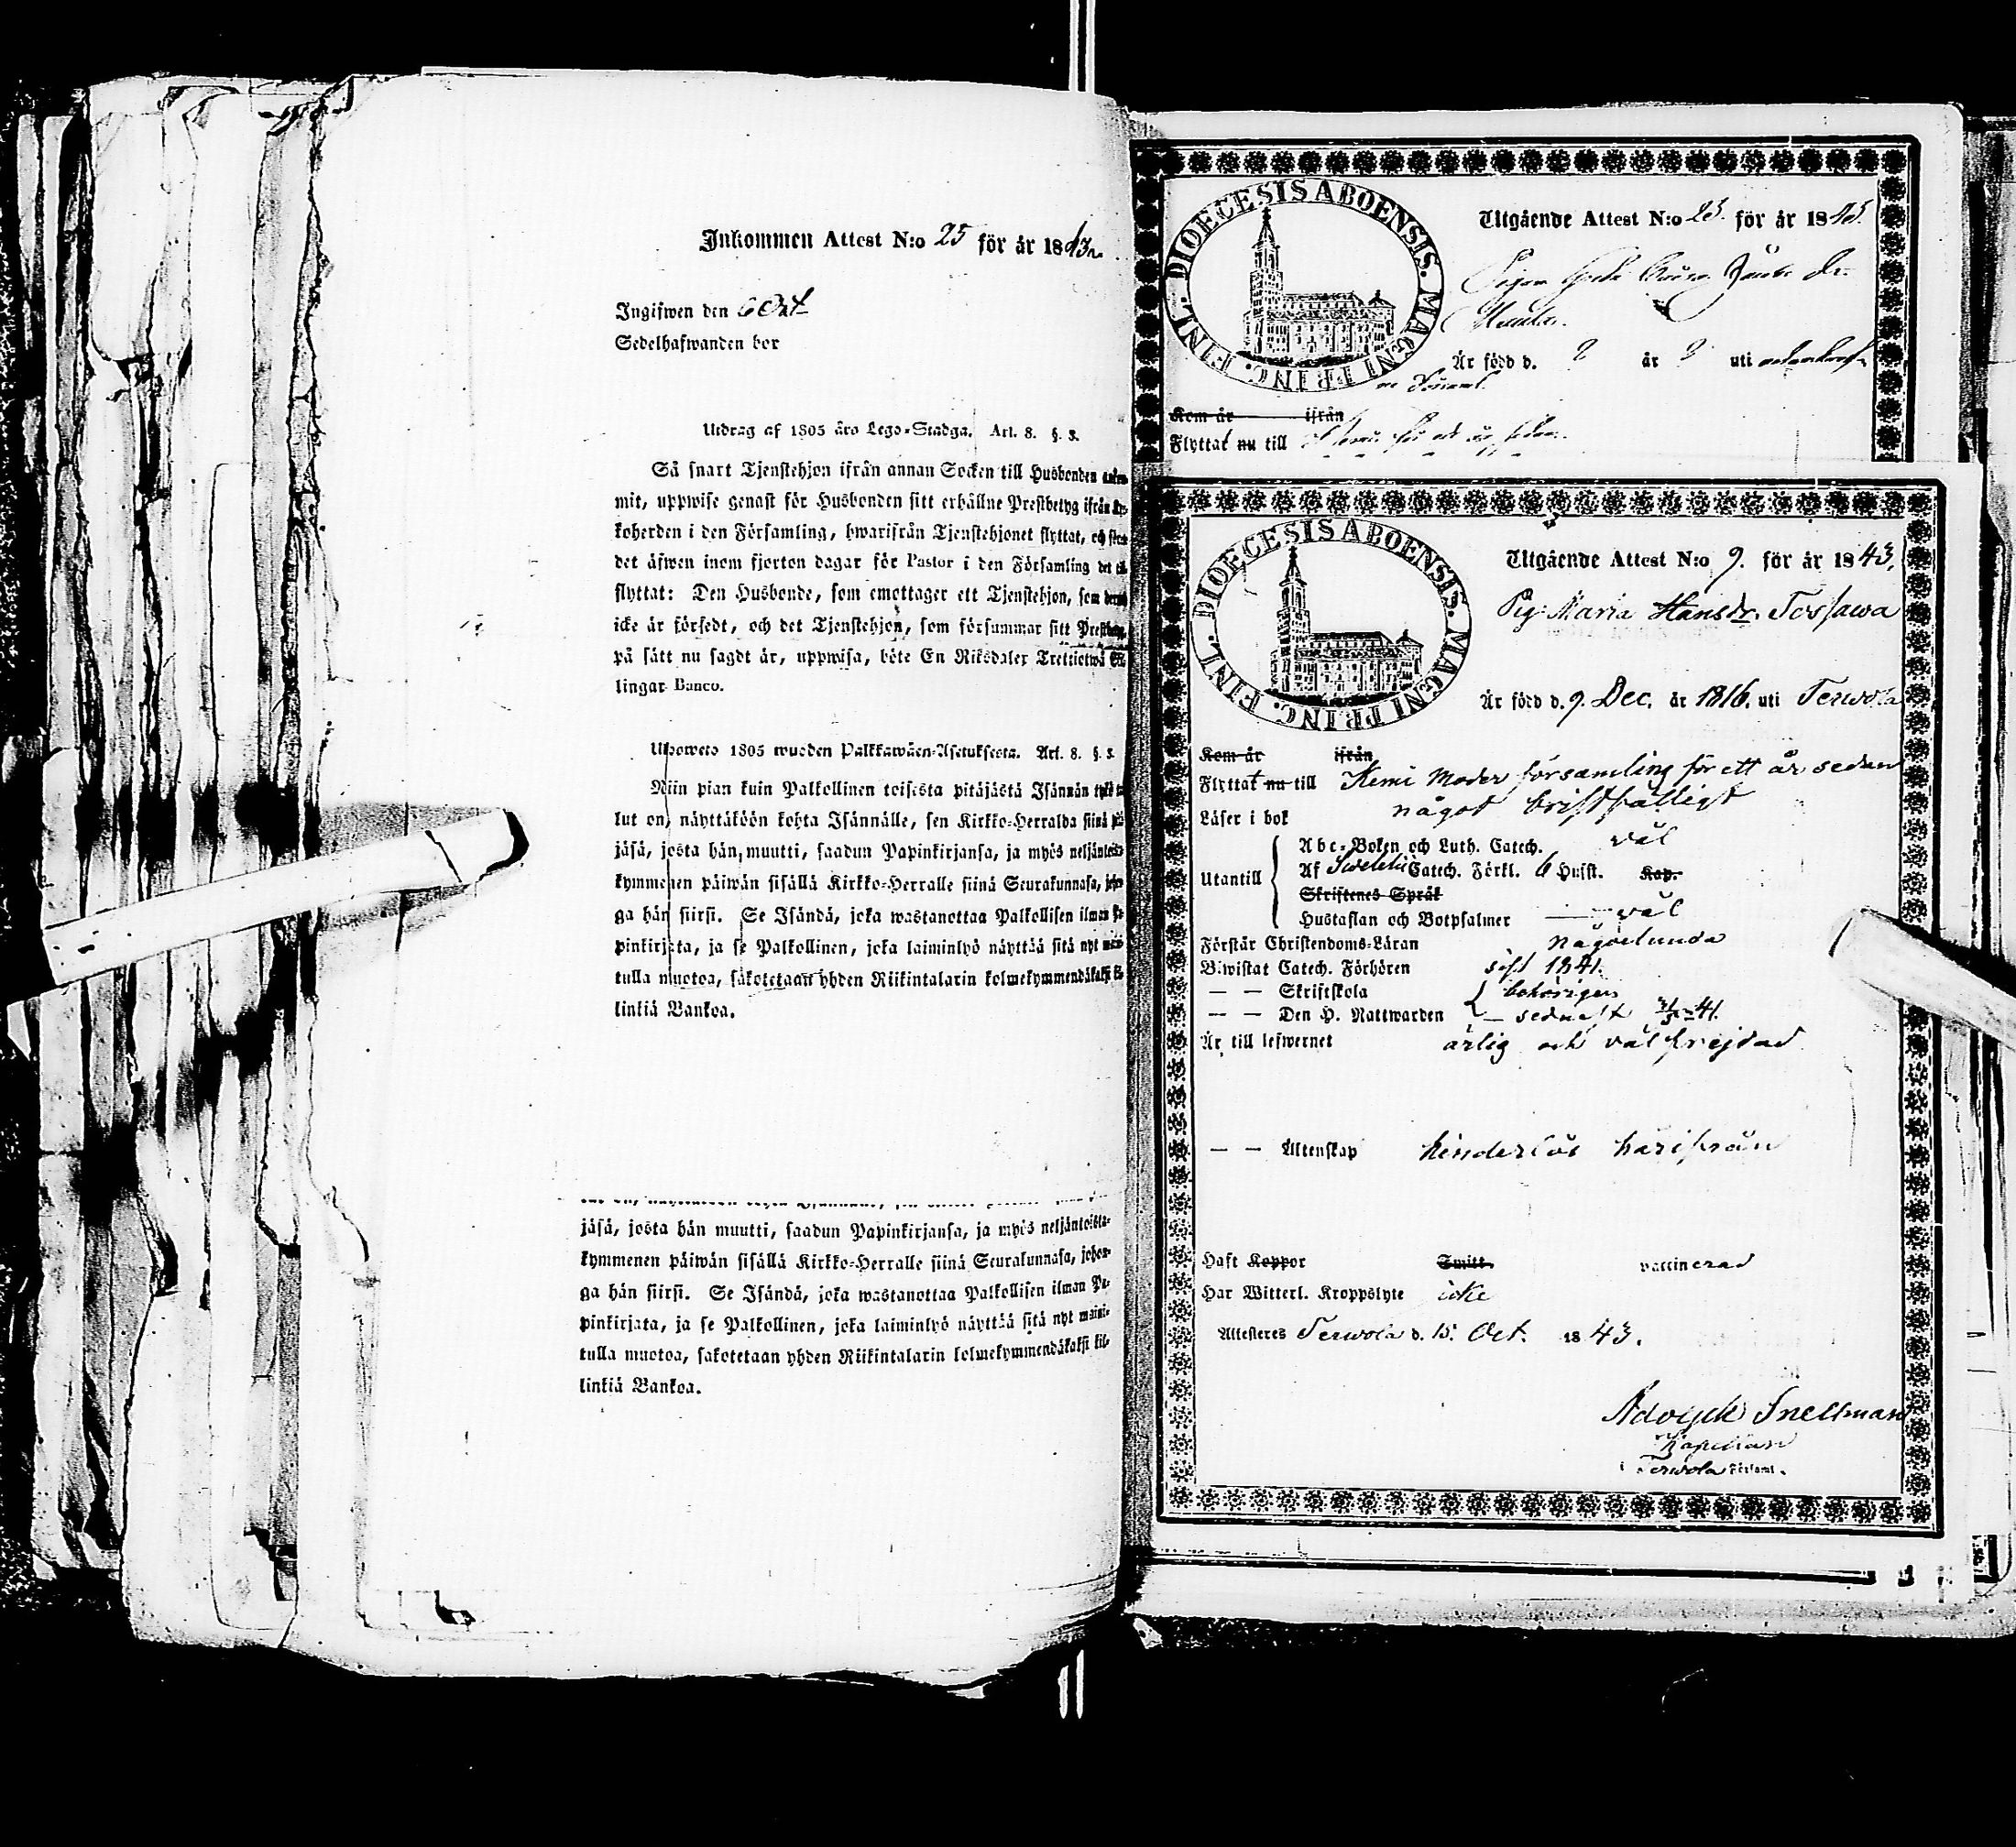 Inkommen Attest N:o 25 för år 1843.
Ingifwen den 6 Oct
Sedelhafwanden bor
Utdrag af 1805 års Lego-Stadga. Art. 8. §. 3.
Så snart Tjenstehjon ifrån annan Socken till Husbonden
mit, uppwise genast för Husbonden sitt erhållne Prestbetyg ifrån
koherden i den Församling, hwarifrån Tjenstehjonet flyttat, och
det äfwen inom fjorton dagar för Pastor i den Församling det
flyttat: Den Husbonde, som emottager ett Tjenstehjon, som
icke är försedt, och det Tjenstehjon, som försummar sitt
på sätt nu sagdt är, uppwisa, böte En Riksdaler Trettiotwå
lingar Banco.
Ulosweto 1805 wuoden Palkkawäen-Asetuksesta. Art. 8. §. 3.
Niin pian kuin Palkollinen toisesta pitäjästä Isännän
lut on, näyttäköön kohta Isännälle, sen Kirkko-Herralda siinä
jäsä, josta hän muutti, saadun Papinkirjansa, ja myös
kymmenen päiwän sisällä Kirkko-Herralle siinä Seurakunnasa,
ga hän siirsi. Se Isändä, joka wastanottaa Palkollisen ilman
pinkirjata, ja se Palkollinen, joka laiminlyö näyttää sitä nyt
tulla muotoa, sakotetaan yhden Riikintalarin kolmekymmendäkaksi
linkiä Bankoa.
jäsä, josta hän muutti, saadun Papinkirjansa, ja myös neljäntoista-
kymmenen päiwän sisällä Kirkko-Herralle siinä Seurakunnasa, johon-
ga hän siirsi. Se Isändä, joka wastanottaa Palkollisen ilman Pa-
pinkirjata, ja se Palkollinen, joka laiminlyö näyttää sitä nyt maini-
tulla muotoa, sakotetaan yhden Riikintalarin kolmekymmendäkaksi kil-
linkiä Bankoa.
DIOECESIS ABOENSIS. MAGNI PRINC. FINL.
Utgående Attest N:o 23. för år 1843
Är född d. ? år ? uti
Kom år ifrån
Flyttat nu till
DIOECESIS ABOENSIS. MAGNI PRINC. FINL.
Utgående Attest N:o 9. för år 1843.
Pig. Maria Hansdr. Torsawa
Är född d. 9. Dec. år 1816. uti Terwola
Kom år ifrån
Flyttat nu till Kemi Moder församling för ett år sedan
Läser i bok något bristfälligt
Abc-Boken och Luth. Catech. väl
Utantill Af Svebelii Catech. Förkl. 6 Hufst. Kap.
Skriftenes Språk
Hustaflan och Botpsalmer väl
Förstår Christendoms-Läran någorlunda
Biwistat Catech. Förhören sist 1841.
— — Skriftskola behörigen
— — Den H. Nattwarden — sednast 41.
Är till lefwernet ärlig och välfrejdad
— — Äktenskap hinderlös härifrån
Haft Koppor Smitt. vaccinerad
Har Witterl. Kroppslyte icke
Attesteres Terwola d. 15. Oct. 1843.
Adolph Snellman
Kapellan
i Terwola Församl.